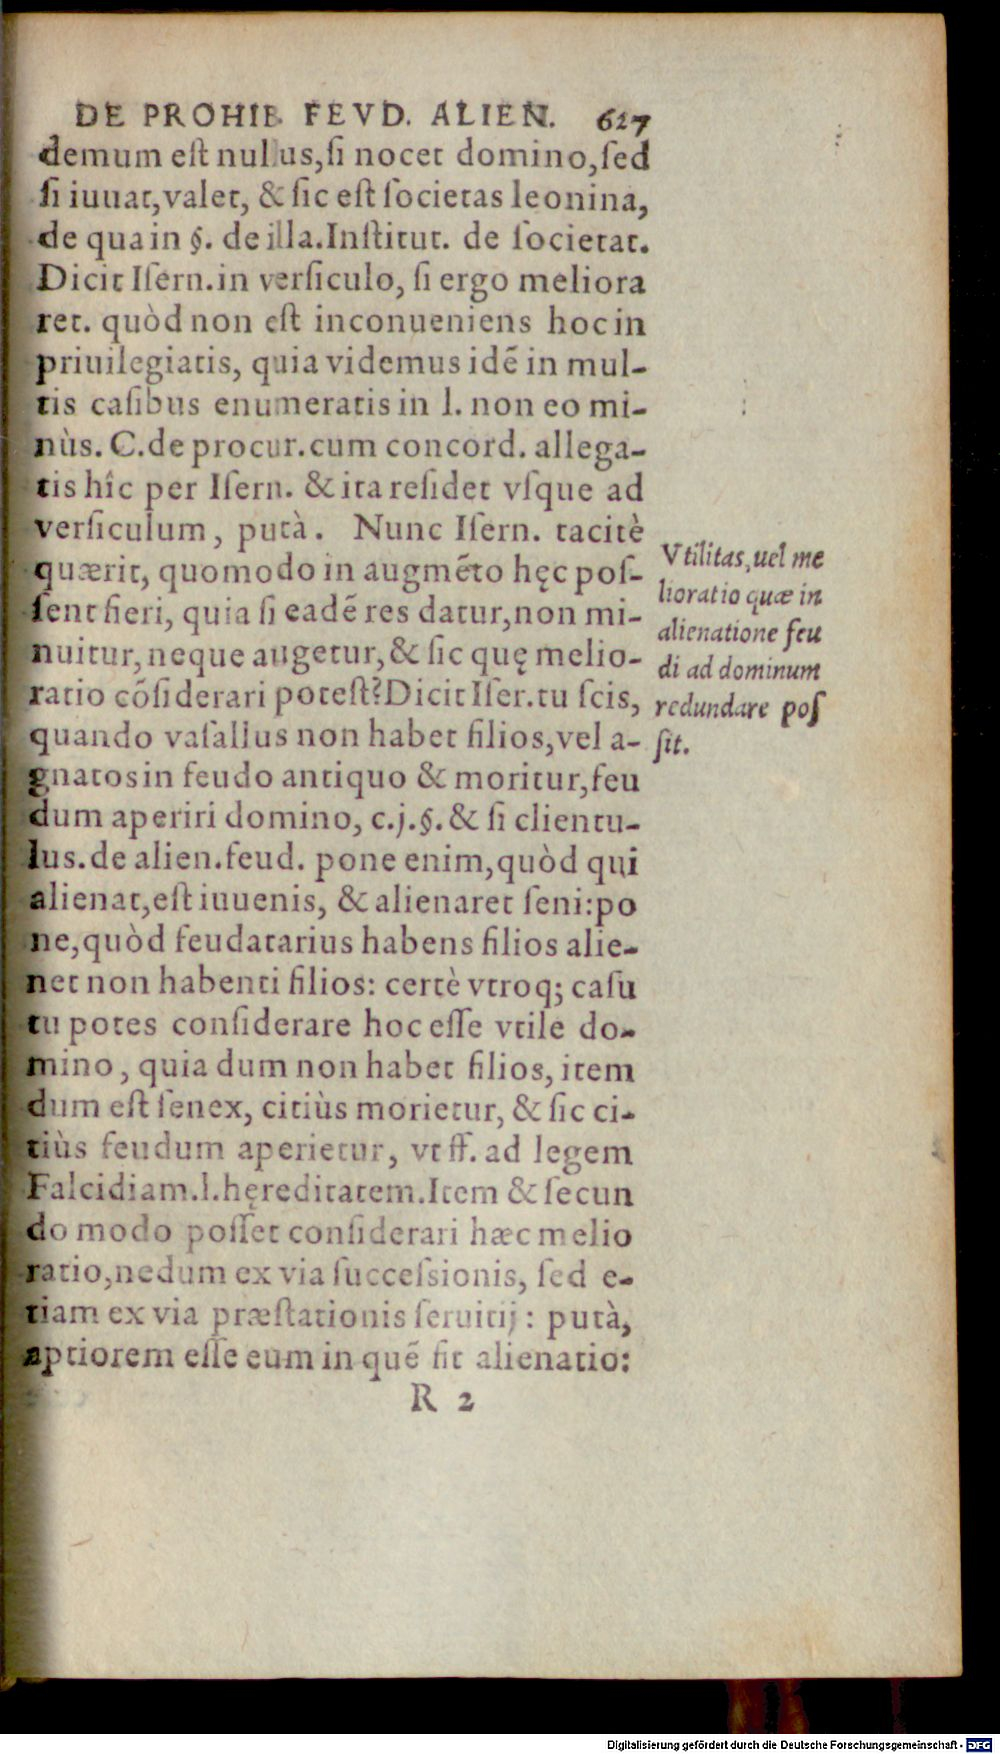 DE PROHIB. FEVD. ALIEN. 627
demum eſt nullus, ſi nocet domino, ſed
ſi iuuat, valet, & ſic eſt ſocietas leonina,
de qua in §. de illa. Inſtitut. de ſocietat.
Dicit Iſern. in verſiculo, ſi ergo meliora
ret. quòd non eſt inconueniens hoc in
priuilegiatis, quia videmus idē in mul-
tis caſibus enumeratis in l. non eo mi-
nùs. C. de procur. cum concord. allega-
tis hîc per Iſern. & ita reſidet vſque ad
verſiculum, putà. Nunc Iſern. tacitè
quærit, quomodo in augmēto hęc poſ-
ſent fieri, quia ſi eadē res datur, non mi-
nuitur, neque augetur, & ſic quę melio-
ratio cōſiderari poteſt? Dicit Iſer. tu ſcis,
quando vaſallus non habet filios, vel a-
gnatos in feudo antiquo & moritur, feu
dum aperiri domino, c.j.§. & ſi clientu-
lus. de alien. feud. pone enim, quòd qui
alienat, eſt iuuenis, & alienaret ſeni: po
ne, quòd feudatarius habens filios alie-
net non habenti filios: certè vtroq; caſu
tu potes conſiderare hoc eſſe vtile do-
mino, quia dum non habet filios, item
dum eſt ſenex, citiùs morietur, & ſic ci-
tiùs feudum aperietur, vt ff. ad legem
Falcidiam. l. hęreditatem. Item & ſecun
do modo poſſet conſiderari hæc melio
ratio, nedum ex via ſucceſsionis, ſed e-
tiam ex via præſtationis ſeruitij: putà,
aptiorem eſſe eum in quē fit alienatio:
R 2
Vtilitas, uel me
lioratio quæ in
alienatione feu
di ad dominum
redundare poſ
ſit.
Digitalisierung gefördert durch die Deutsche Forschungsgemeinschaft - DFG